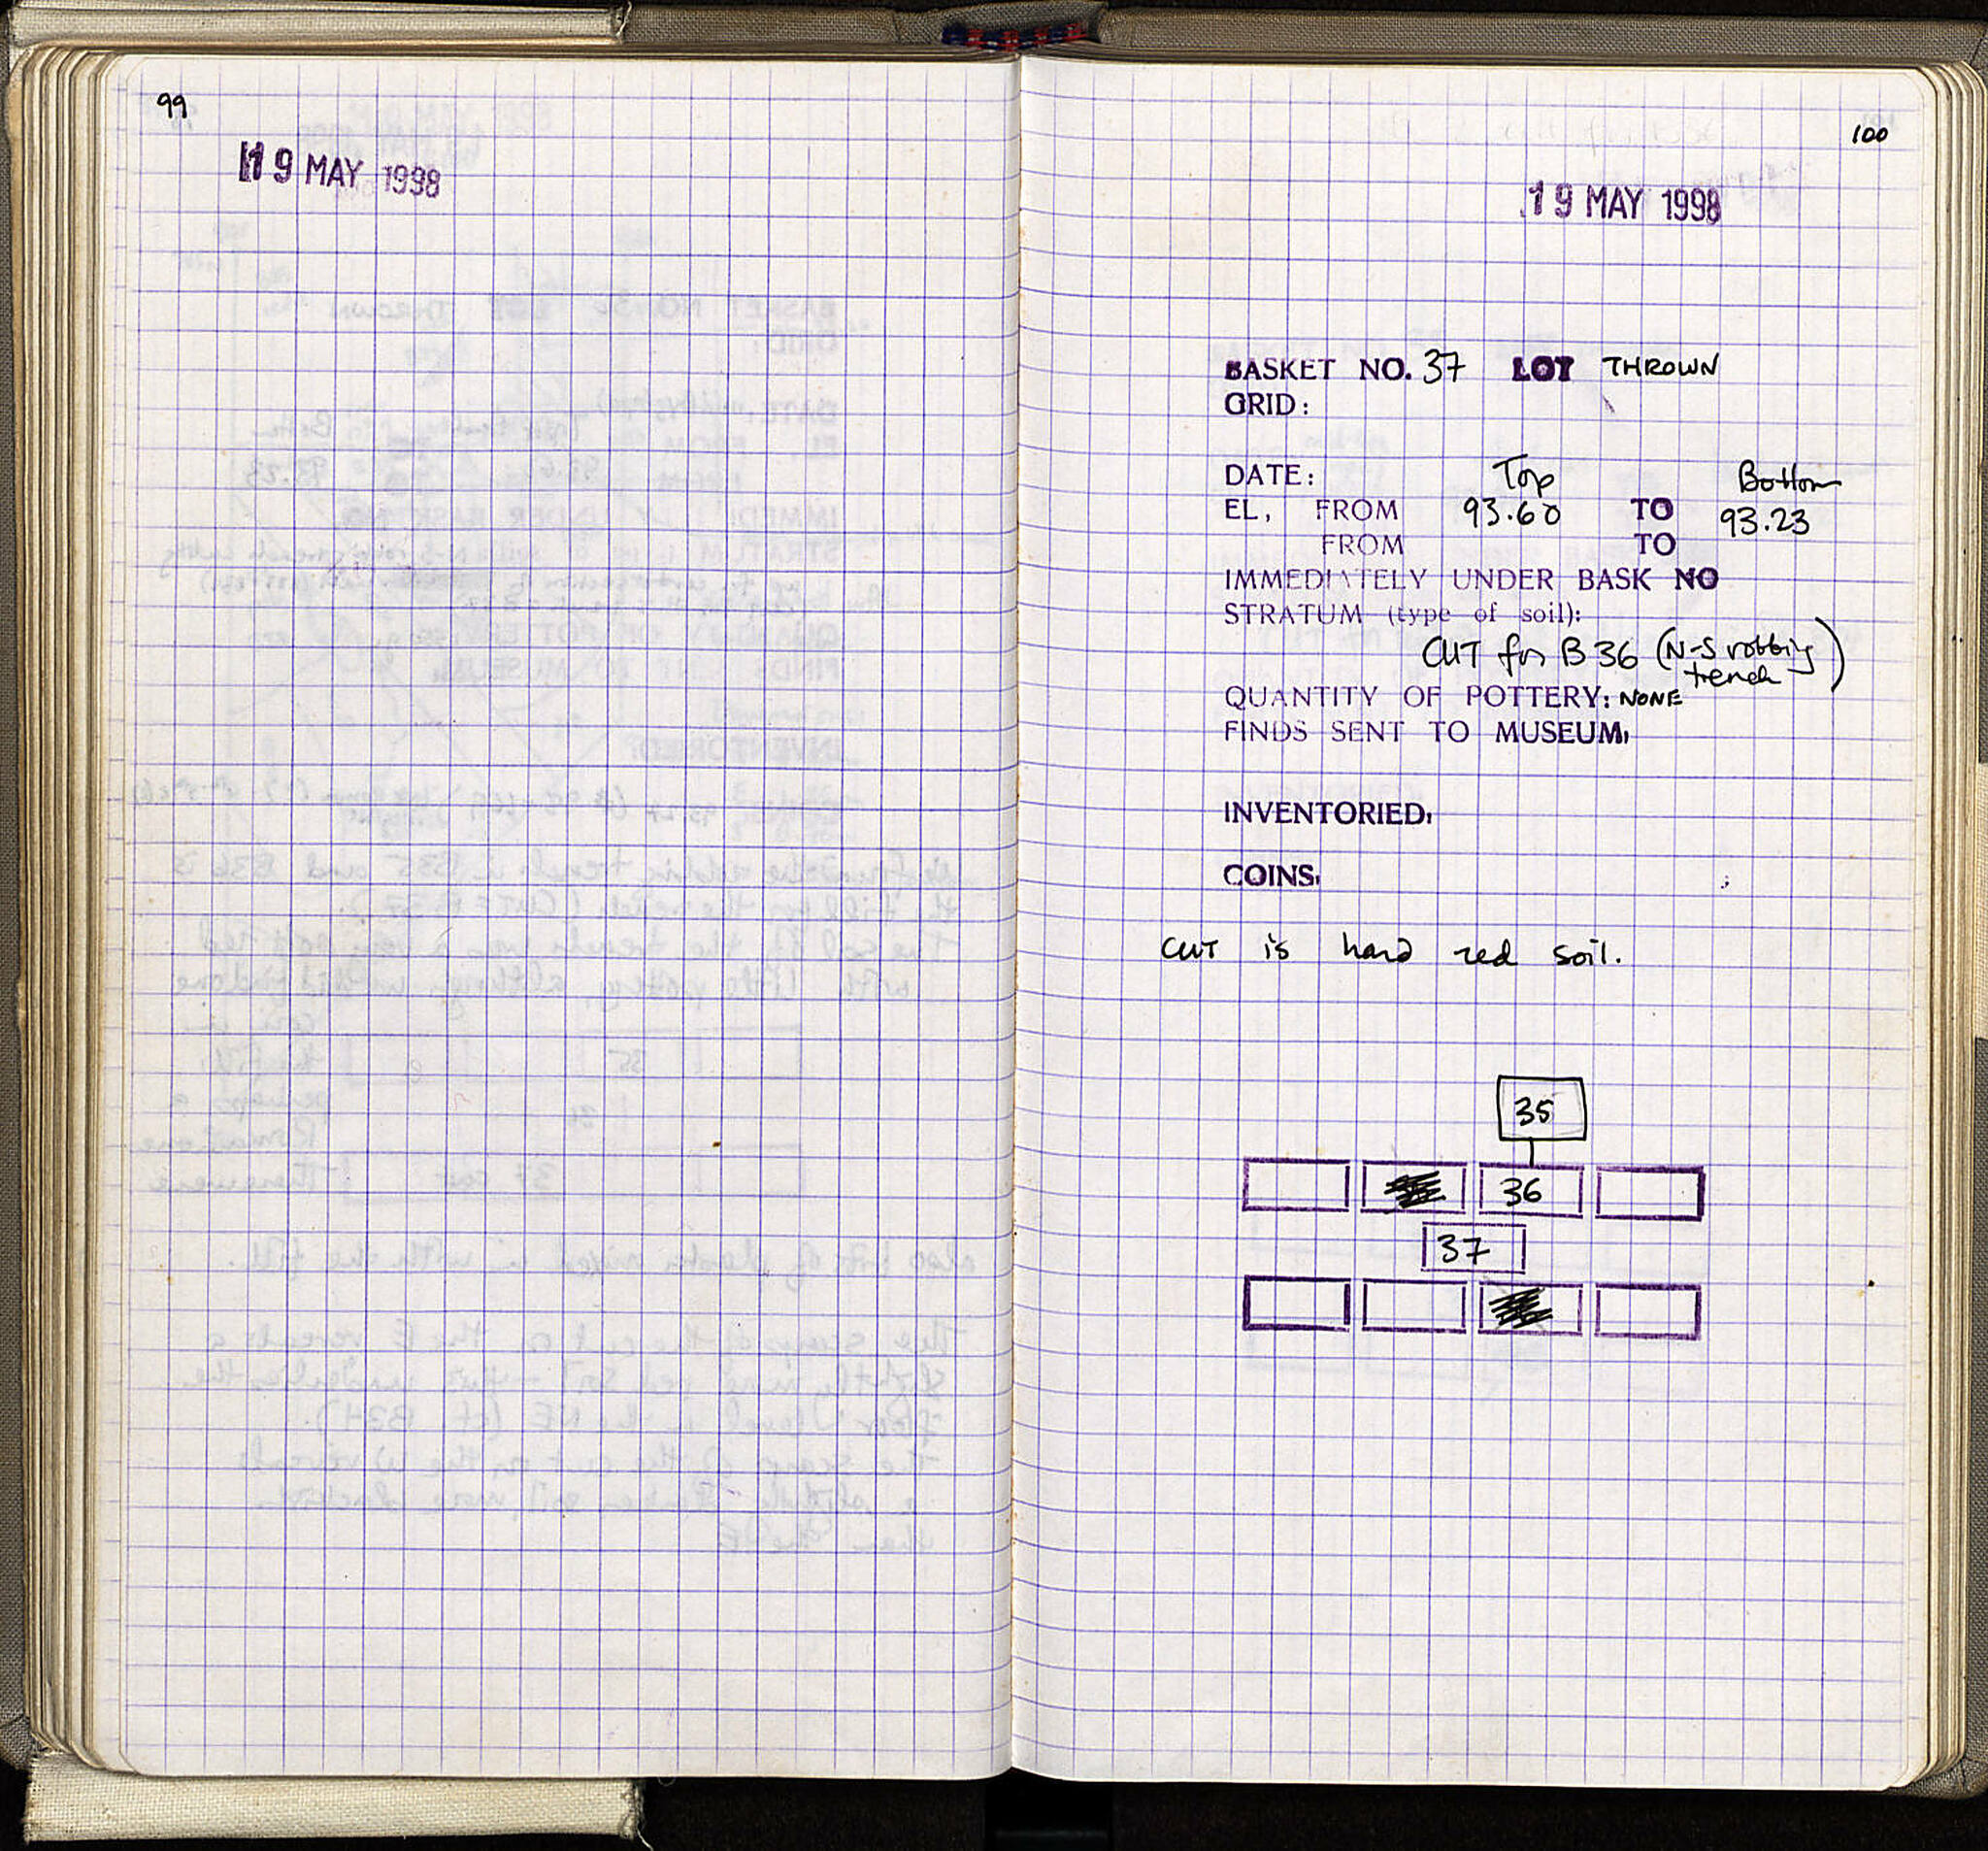 99
19 MAY 1998
100
19 MAY 1998
BASKET NO. 37 LOT THROWN
GRID:
DATE: Top Bottom
EL, FROM 93.60 TO 93.23
FROM TO
IMMEDIATELY UNDER BASK NO
STRATUM (type of soil):
CUT for B 36 (N-S robbing
trench)
QUANTITY OF POTTERY: NONE
FINDS SENT TO MUSEUM,
INVENTORIED,
COINS,
CUT is hard red soil.
35
36
37